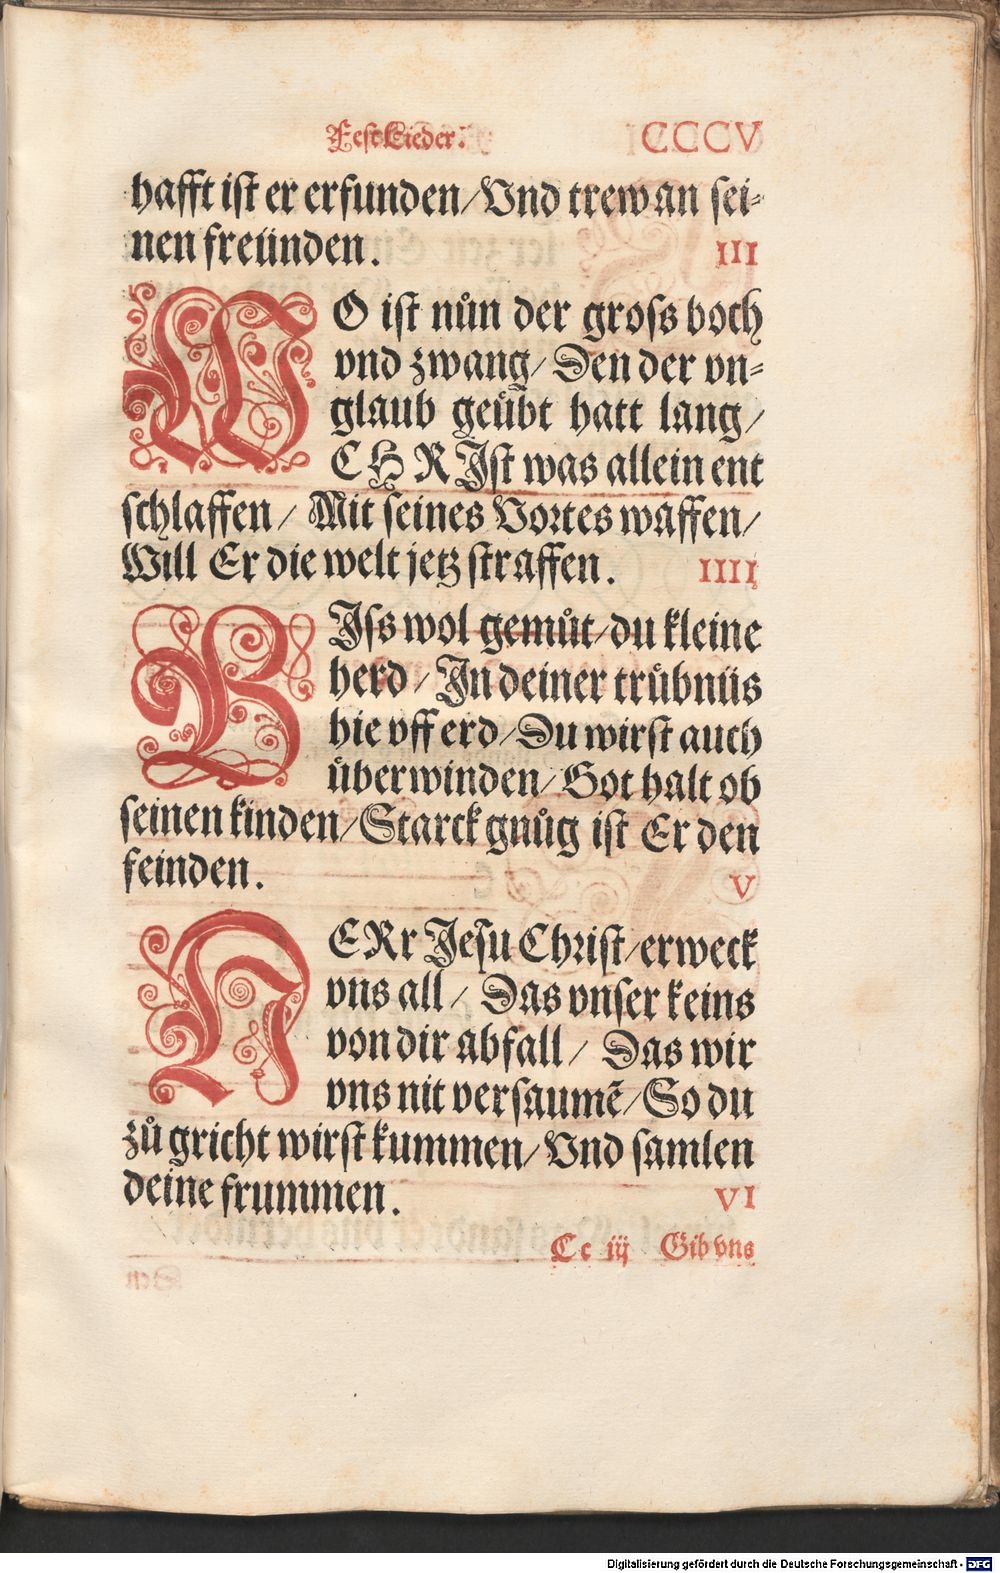 FestLieder. CCCV
hafft ist er erfunden/Vnd trew an sei⸗
nen freünden. III
WO ist nůn der gross boch
vnd zwang/Den der vn⸗
glaub geübt hatt lang/
CHRIst was allein ent
schlaffen/ Mit seines Vortes waffen/
Will Er die welt jetz straffen. IIII
BIss wol gemůt/du kleine
herd/In deiner trůbnüs
hie vff erd/Du wirst auch
überwinden/Got halt ob
seinen kinden/Starck gnůg ist Er den
feinden. V
HERr Jesu Christ/erweck
vns all/ Das vnser keins
von dir abfall/ Das wir
vns nit versaumē/So du
zů gricht wirst kummen/Vnd samlen
deine frummen. VI
Cc iij Gib vns
Digitalisierung gefördert durch die Deutsche Forschungsgemeinschaft - DFG